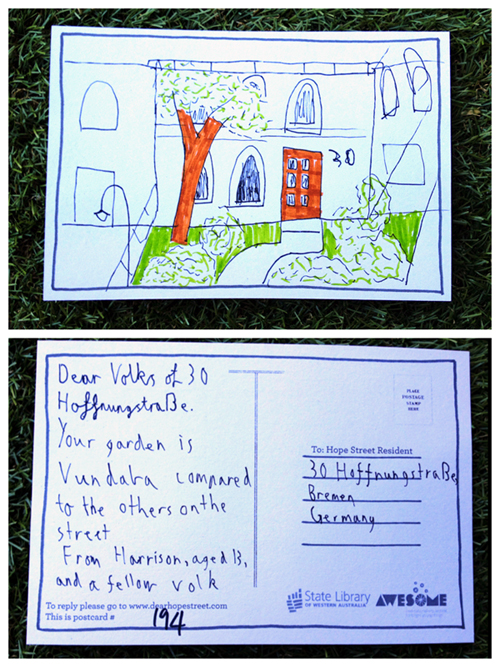 30
Dear Volks of 30
Hoffnungstraße.
Your garden is
Vundaba compared
to the others on the
street
From Harrison, aged 13,
and a fellow volk
To reply please go to www.dearhopestreet.com
This is postcard # 194
PLACE
POSTAGE
STAMP
HERE
To: Hope Street Resident
30 Hoffnungstraße,
Bremen
Germany
State Library
OF WESTERN AUSTRALIA
AWESOME